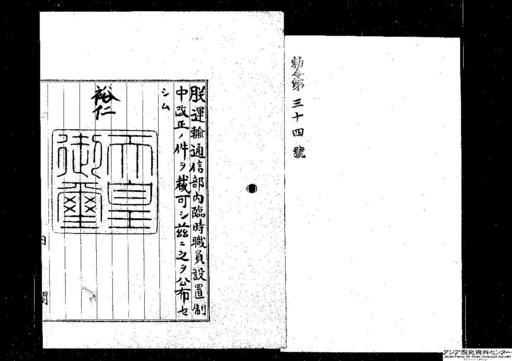 勅令第三十四號
朕運輸通信部內臨時職員設置制
中改正ノ件ヲ裁可シ茲ニ之ヲ公布セ
シム
裕仁
天皇
御璽
内閣
アジア歴史資料センター